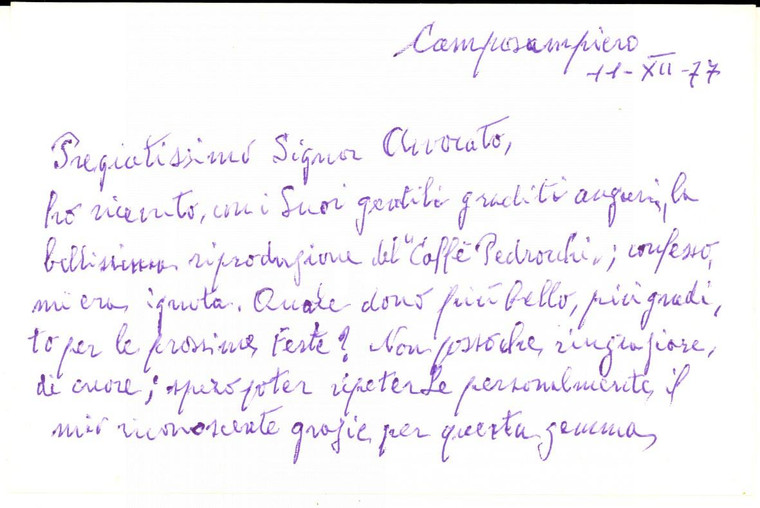 Camposampiero
11-XII-77
Pregiatissimo Signor Avvocato,
ho ricevuto, con i Suoi gentili graditi auguri, la
bellissima riproduzione del "Caffè Pedrocchi"; confesso,
mi era ignota. Quale dono più bello, più gradi,
to per le prossime Feste? Non posso che ringraziare,
di cuore; spero poter ripeterLe personalmente il
mio riconoscente grazie per questa gemma